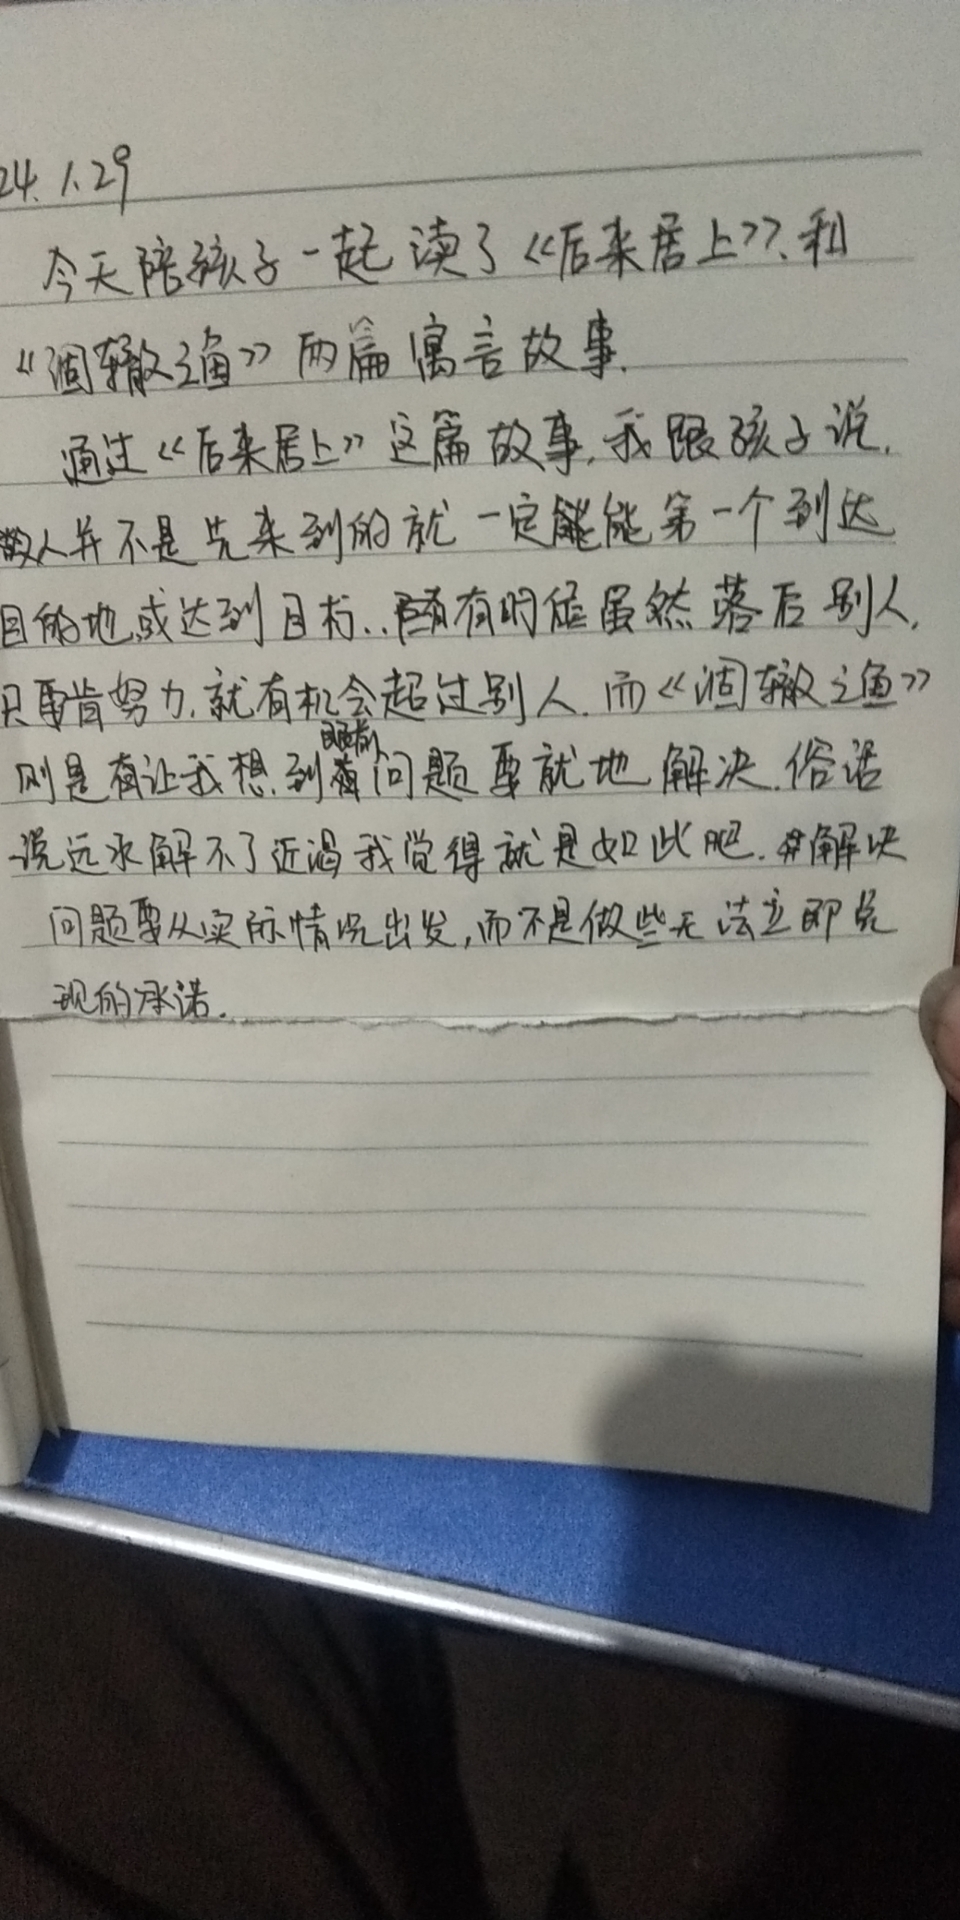 24.1.29
今天陪孩子一起读了《后来居上》、和
《涸辙之鱼》两篇寓言故事.
通过《后来居上》这篇故事,我跟孩子说,
做人并不是先来到的就一定能能第一个到达
目的地,或达到目标..有有时候虽然落后别人,
只要肯努力,就有机会超过别人.而《涸辙之鱼》
则是有让我想到眼前问题要就地解决.俗话
说远水解不了近渴我觉得就是如此吧.解决
问题要从实际情况出发,而不是做些无法立即兑
现的承诺.